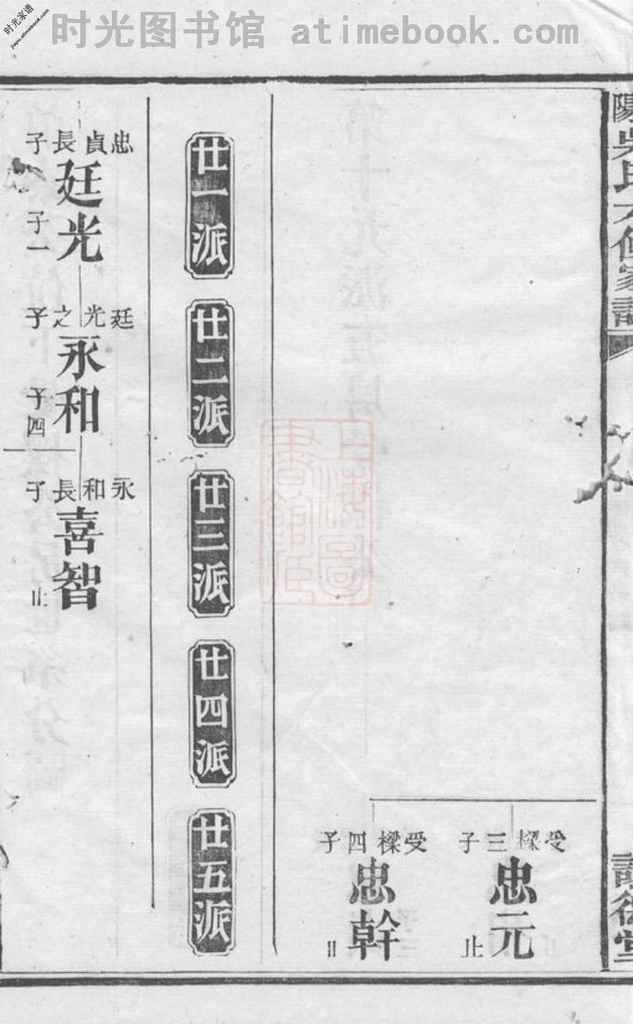 时光图书馆 atimebook.com
时光家谱
受樑三子
忠元
止
受樑四子
忠幹
止
廿一派
廿二派
廿三派
廿四派
廿五派
忠貞長子
廷光
子一
廷光之子
永和
子四
永和長子
喜智
止